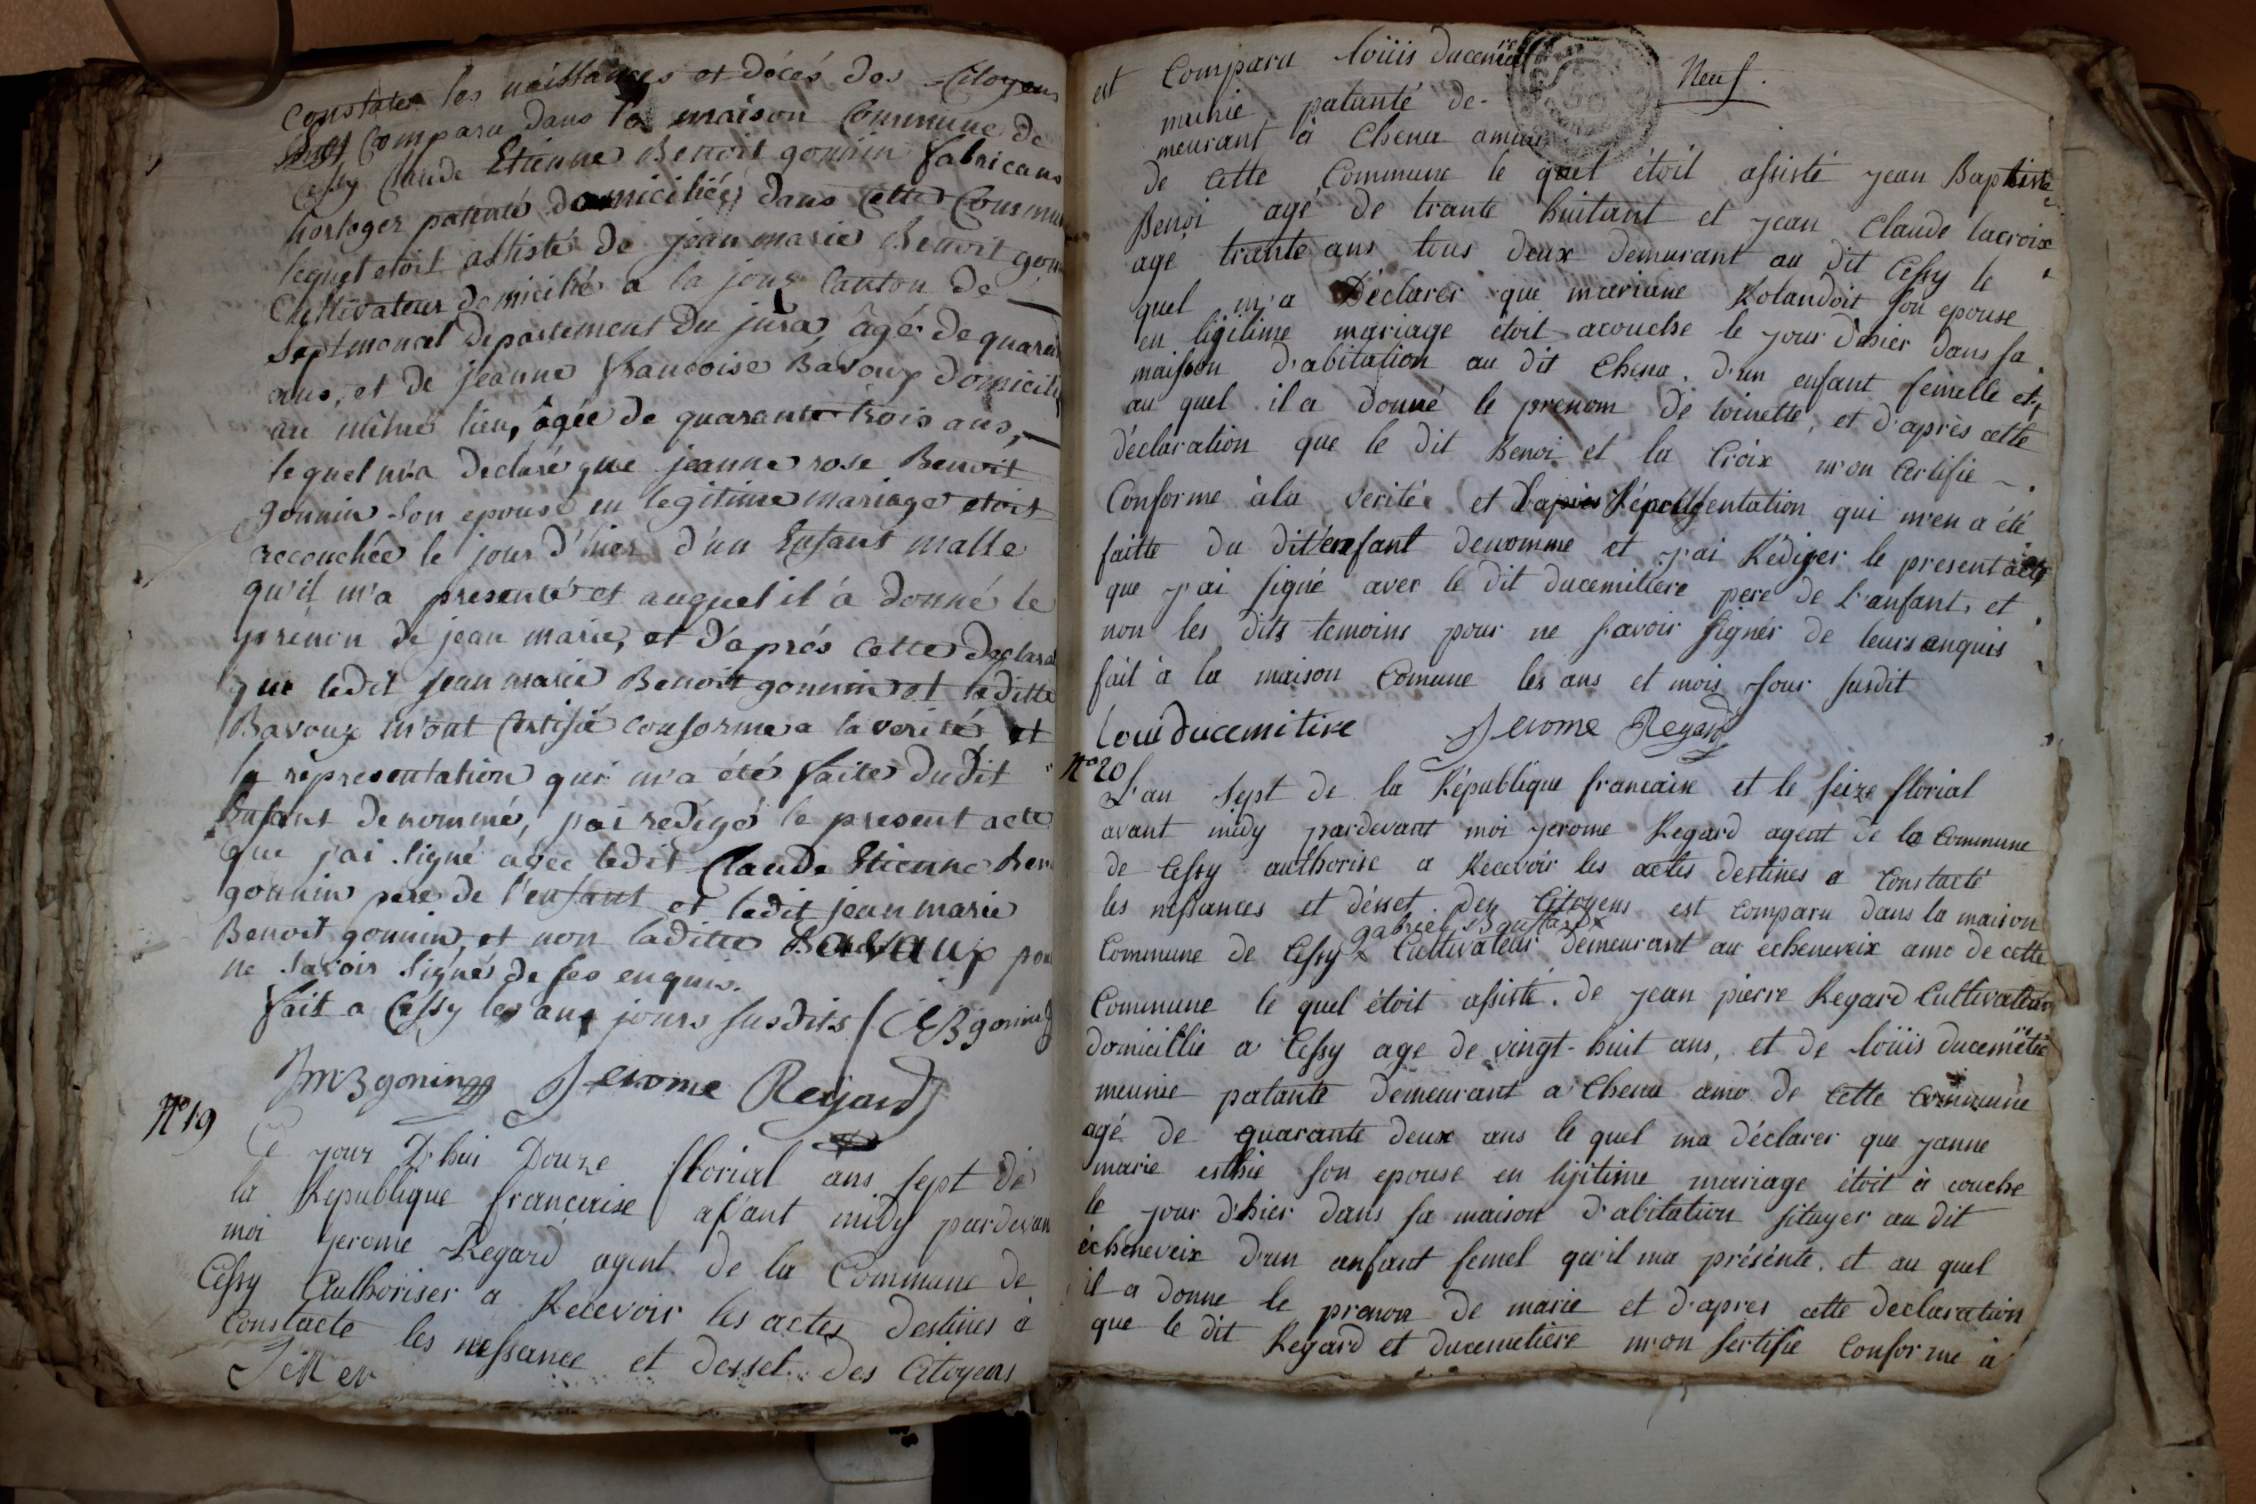 constater les naissances et décés des Citoyens
Est Comparu dans la maison Commune de
Cessy Claude Etienne Benoit gonnin fabricans
horloger patenté domiciliée dans cette Commu
lequel etoit assisté de jean marie Benoit gon
Cultivateur domicilié a la joux Canton de
Septmoncel departement du jura, âgé de quaran
ans, et de jeanne francoise Bavoux domicili
au même lieu, âgée de quarante trois ans,
lequel m'a declaré que jeanne rose Benoit
gonnin son epouse en legitime mariage etoit
accouchée le jour d'hier d'un Enfant malle
qu'il m'a presenté et auquel il à donné le
prénon de jean marie, et d'aprés cette declara
que ledit jean marie Benoit gonnin et laditte
Bavoux m'ont Certifié conforme a la verité et
la répresentation qui m'a été faite dudit
Enfant denommé, j'ai redigé le present acte
que j'ai signé avec ledit Claude Etienne Ben
gonnin pere de l'enfant et ledit jean marie
Benoit gonnin, et non laditte Bavaux pou
ne savoir signé de ses enquis.
fait a Cessy les an et jours susdits / CEBgonin
JmBgonin Jerome Regard
N° 19
Ce jour D'hui Douze florial ans sept de
la République francaise avant midy pardevan
moi jerome Regard agent de la Commune de
Cessy Authoriser a Recevoir les actes destines à
Constacte les nessance et desset des Citoyens
est Comparu loüis ducemetiere
Neuf.
munie patanté de-
meurant à Chena amau
de cette Commune le quel étoit assisté jean Baptiste
Benoi agé de trante huitant et jean Claude lacroix
age trante ans tous deux demurant au dit Cessy le
quel m'a Déclarer que mariane Rolandoit son epouse
en ligitime mariage étoit acouche le jour d'hier dans sa
maison d'abitation au dit Chena. d'un enfant femelle et
au quel il a donné le prenom de toinette, et d'après cette
déclaration que le dit Benoi et la Croix m'on Certifie
Conforme àla verité et Dapres Réprésentation qui m'en a été
faitte du dit énfant denomme et j'ai Rédiger le present acte
que j'ai signé avec le dit ducemitiere pere de L'anfant, et
non les dits temoins pour ne savoir signér de leurs anquis
fait à la maison Comune les ans et mois jour susdit
Loui ducemitire Jerome Regard
N° 20
L'an sept de la République francaise et le seize florial
avant midy pardevant moi jerome Regard agent de la Commune
de Cessy authorise a Recevoir les actes destines a Constacté
les nessances et désset des Citoyens est comparu dans la maison
gabriel
Commune de Cessy Cultivateur demeurant au echeneveix amo de cette
Commune le quel étoit assisté. de jean pierre Regard Cultivateur
domicillie a Cessy age de vingt-huit ans, et de loüis ducemetiere
meunie patante demeurant a Chena amo de cette commune
agé de quarante deux ans le quel ma déclarer que janne
marie esthié son epouse en lijitime mariage étoit à couche
le jour d'hier dans sa maison d'abitation situyer au dit
écheneveix d'un anfant femel qu'il ma présénte. et au quel
il a donne le prenon de marie et d'apres cette declaration
que le dit Regard et ducemetiere m'on sertifie Conforme à